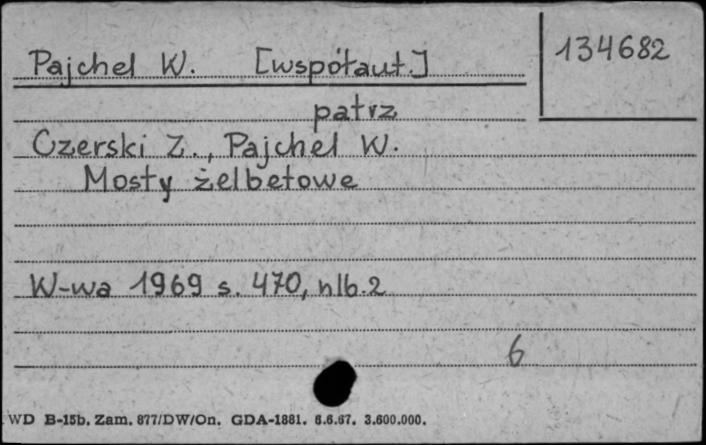 Pajchel W. [współaut.]
134682
patrz
Czerski Z., Pajchel W.
Mosty żelbetowe
W-wa 1969 s. 470, nlb. 2
6
WD B-15b. Zam. 877/DW/On. GDA-1881. 6.6.67. 3.600.000.